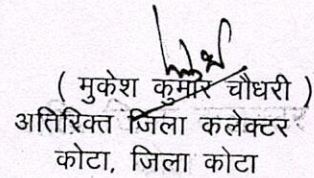 ( मुकेश कुमार चौधरी )
अतिरिक्त जिला कलेक्टर
कोटा, जिला कोटा